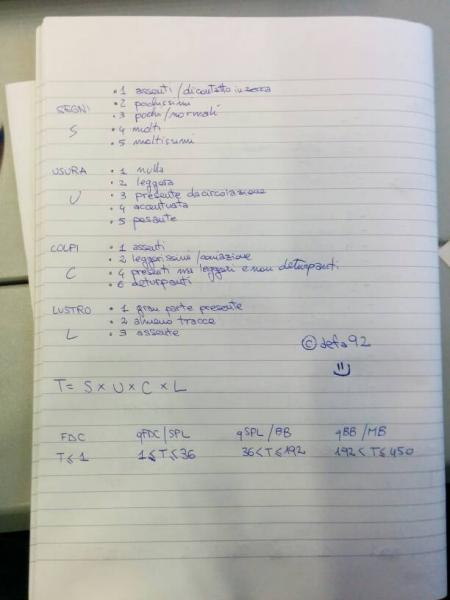 • 1 assenti / di contatto in zecca
SEGNI • 2 pochissimi
• 3 pochi / normali
S • 4 molti
• 5 moltissimi
USURA • 1 nulla
• 2 leggera
U • 3 presente da circolazione
• 4 accentuata
• 5 pesante
COLPI • 1 assenti
• 2 leggerissimi / coniazione
C • 4 presenti ma leggeri e non deturpanti
• 6 deturpanti
LUSTRO • 1 gran parte presente
• 2 almeno tracce
L • 3 assente
© defa92
T = S x U x C x L
FDC qFDC / SPL qSPL / BB qBB / MB
T ≤ 1 1 ≤ T ≤ 36 36 < T ≤ 192 192 < T ≤ 450